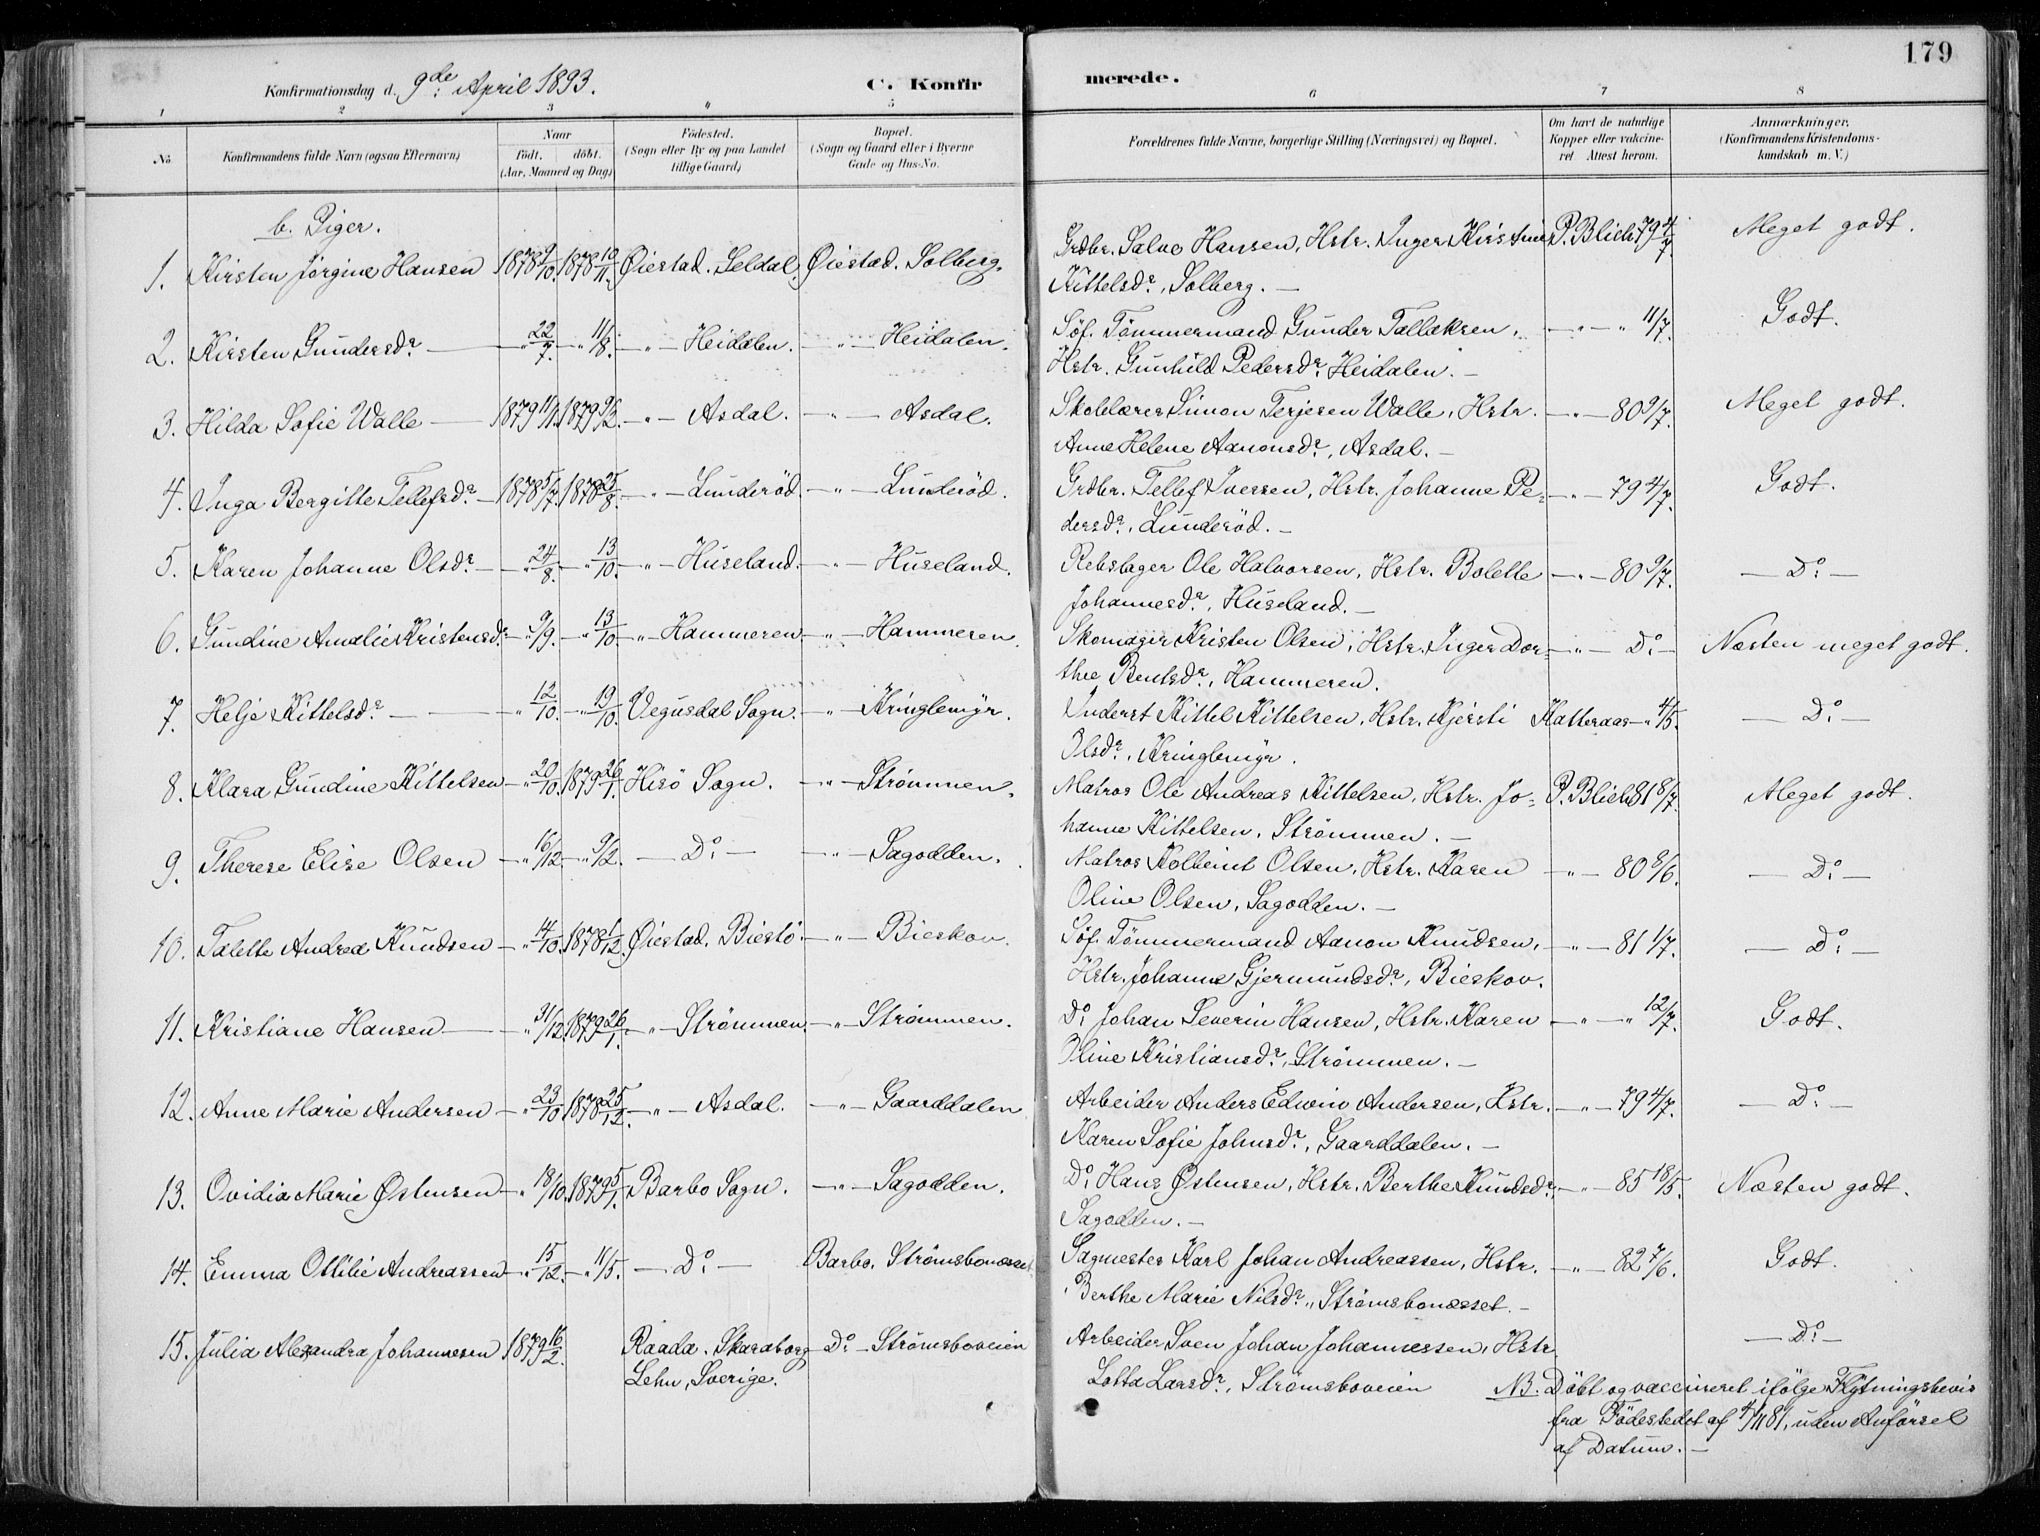 179
Konfirmationsdag d. 9de April 1893. C. Konfirmerede.
1 2 3 " 5 6 7 8
No. Konfirmandens fulde Navn (ogsaa Efternavn) Naar födt. döbt. (Aar, Maaned og Dag) Födested. (Sogn eller By og paa Landet tillige Gaard) Bopæl. (Sogn og Gaard eller i Byerne Gade og Hus-No. Forældrenes fulde Navne, borgerlige Stilling (Næringsvei) og Bopæl. Om havt de naturlige Kopper eller vakcineret Attest herom. Anmærkninger. (Konfirmandens Kristendomskundskab m. V.)
b. Piger.
1. Kirsten Jörgine Hansen 1878 9/10. 1878 10/11. Øiestad. Seldal. Øiestad. Solberg. Grdbr. Salve Hansen, Hstr. Inger Kirstine P. Blich 79 4/7. Meget godt.
Kittelsdr., Solberg. —
2. Kirsten Gundersdr. — — " 22/7. — " 11/8. — " — Heidalen. — " — Heidalen. Söf. Tömmermand Gunder Tallaksen, — " — " 11/7. Godt.
Hstr. Gunhild Pedersdr. Heidalen. —
3. Hilda Sofie Walle — 1879 11/1. 1879 9/2. — " — Asdal. — " — Asdal. Skolelærer Simon Terjesen Walle, Hstr. — " — 80 9/7. Meget godt.
Anne Helene Aanonsdr., Asdal. —
4. Inga Bergitte Tellefsdr. — 1878 5/7. 1878 25/8. — " — Lunderöd. — " — Lunderöd. Grdbr. Tellef Ivessen, Hstr. Johanne Pe= — " — 79 4/7. Godt.
dersdr., Lunderöd. —
5. Karen Johanne Olsdr. — — " 24/8. — " 13/10. — " — Huseland. — " — Huseland. Rebslager Ole Halvorsen, Hstr. Bolette — " — 80 9/7. — Do. —
Johannesdr., Huseland. —
6. Gundine Amalie Kristensdr. — " 9/9. — " 13/10. — " — Hammeren — " — Hammeren. Skomager Kristen Olsen, Hstr. Inger Dor= — " — Do. — Næsten meget godt.
thee Bentsdr., Hammeren.
7. Helje Kittelsdr. — — " 12/10. — " 19/10. Vegusdal Sogn. — " — Kringlemyr. Inderst Kittel Kittelsen, Hstr. Kjersti Katteraas — " 4/5. — Do. —
Olsdr., Kringlemyr.
8. Klara Gundine Kittelsen — " 20/10. 1879 26/1. Hisö Sogn. — " — Strömmen. Matros Ole Andreas Kittelsen, Hstr. Jo= P. Blich 81 8/7. Meget godt.
hanne Kittelsen, Strömmen. —
9. Therese Elise Olsen — " 16/12. — " 9/2. — Do. — — " — Sagodden. Matros Kolbeint Olsen, Hstr. Karen — " — 80 8/6. — Do. —
Oline Olsen, Sagodden. —
10. Talette Andrea Knudsen — " 14/10. 1878 1/12. Øiestad. Biestö. — " — Bieskov. Söf. Tömmermand Aanon Knudsen, — " — 81 1/7. — Do. —
Hstr. Johanne Gjermundsdr., Bieskov.
11. Kristiane Hansen — " 31/12. 1879 26/1. — " — Strömmen. — " — Strömmen. Do. Johan Severin Hansen, Hstr. Karen — " — " 12/7. Godt.
Oline Kristiansdr., Strömmen. —
12. Anne Marie Andersen — " 23/10. 1878 25/12. — " — Asdal. — " — Gaarddalen Arbeider Anders Edwin Andersen, Hstr. — " — 79 4/7. — Do. —
Karen Sofie Johnsdr., Gaarddalen. —
13. Ovidia Marie Østensen — " 18/10. 1879 5/1. Barbo Sogn. — " — Sagodden. Do. Hans Østensen, Hstr. Berthe Knudsdr., — " — 85 18/5. Næsten godt.
Sagodden. —
14. Emma Ottilie Andreassen — " 15/12. — " 11/5. — Do. — Barbo. Strömsbonesset Sagmester Karl Johan Andreassen, Hstr. — " — 82 7/6. Godt.
Berthe Marie Nilsdr., Strömsbonæsset. —
15. Julia Alexandra Johannesen 1879 16/2. Raada. Skaraborg Do. — Strömsboveien Arbeider Sven Johan Johannessen, Hstr. — Do. —
Lehn, Sverige. Lotta Larsdr., Strömsboveien NB. Döbt og vaccineret ifölge Flytningsbevis
fra Födestedet af 4/11 81, uden Anförsel
af Datum. —